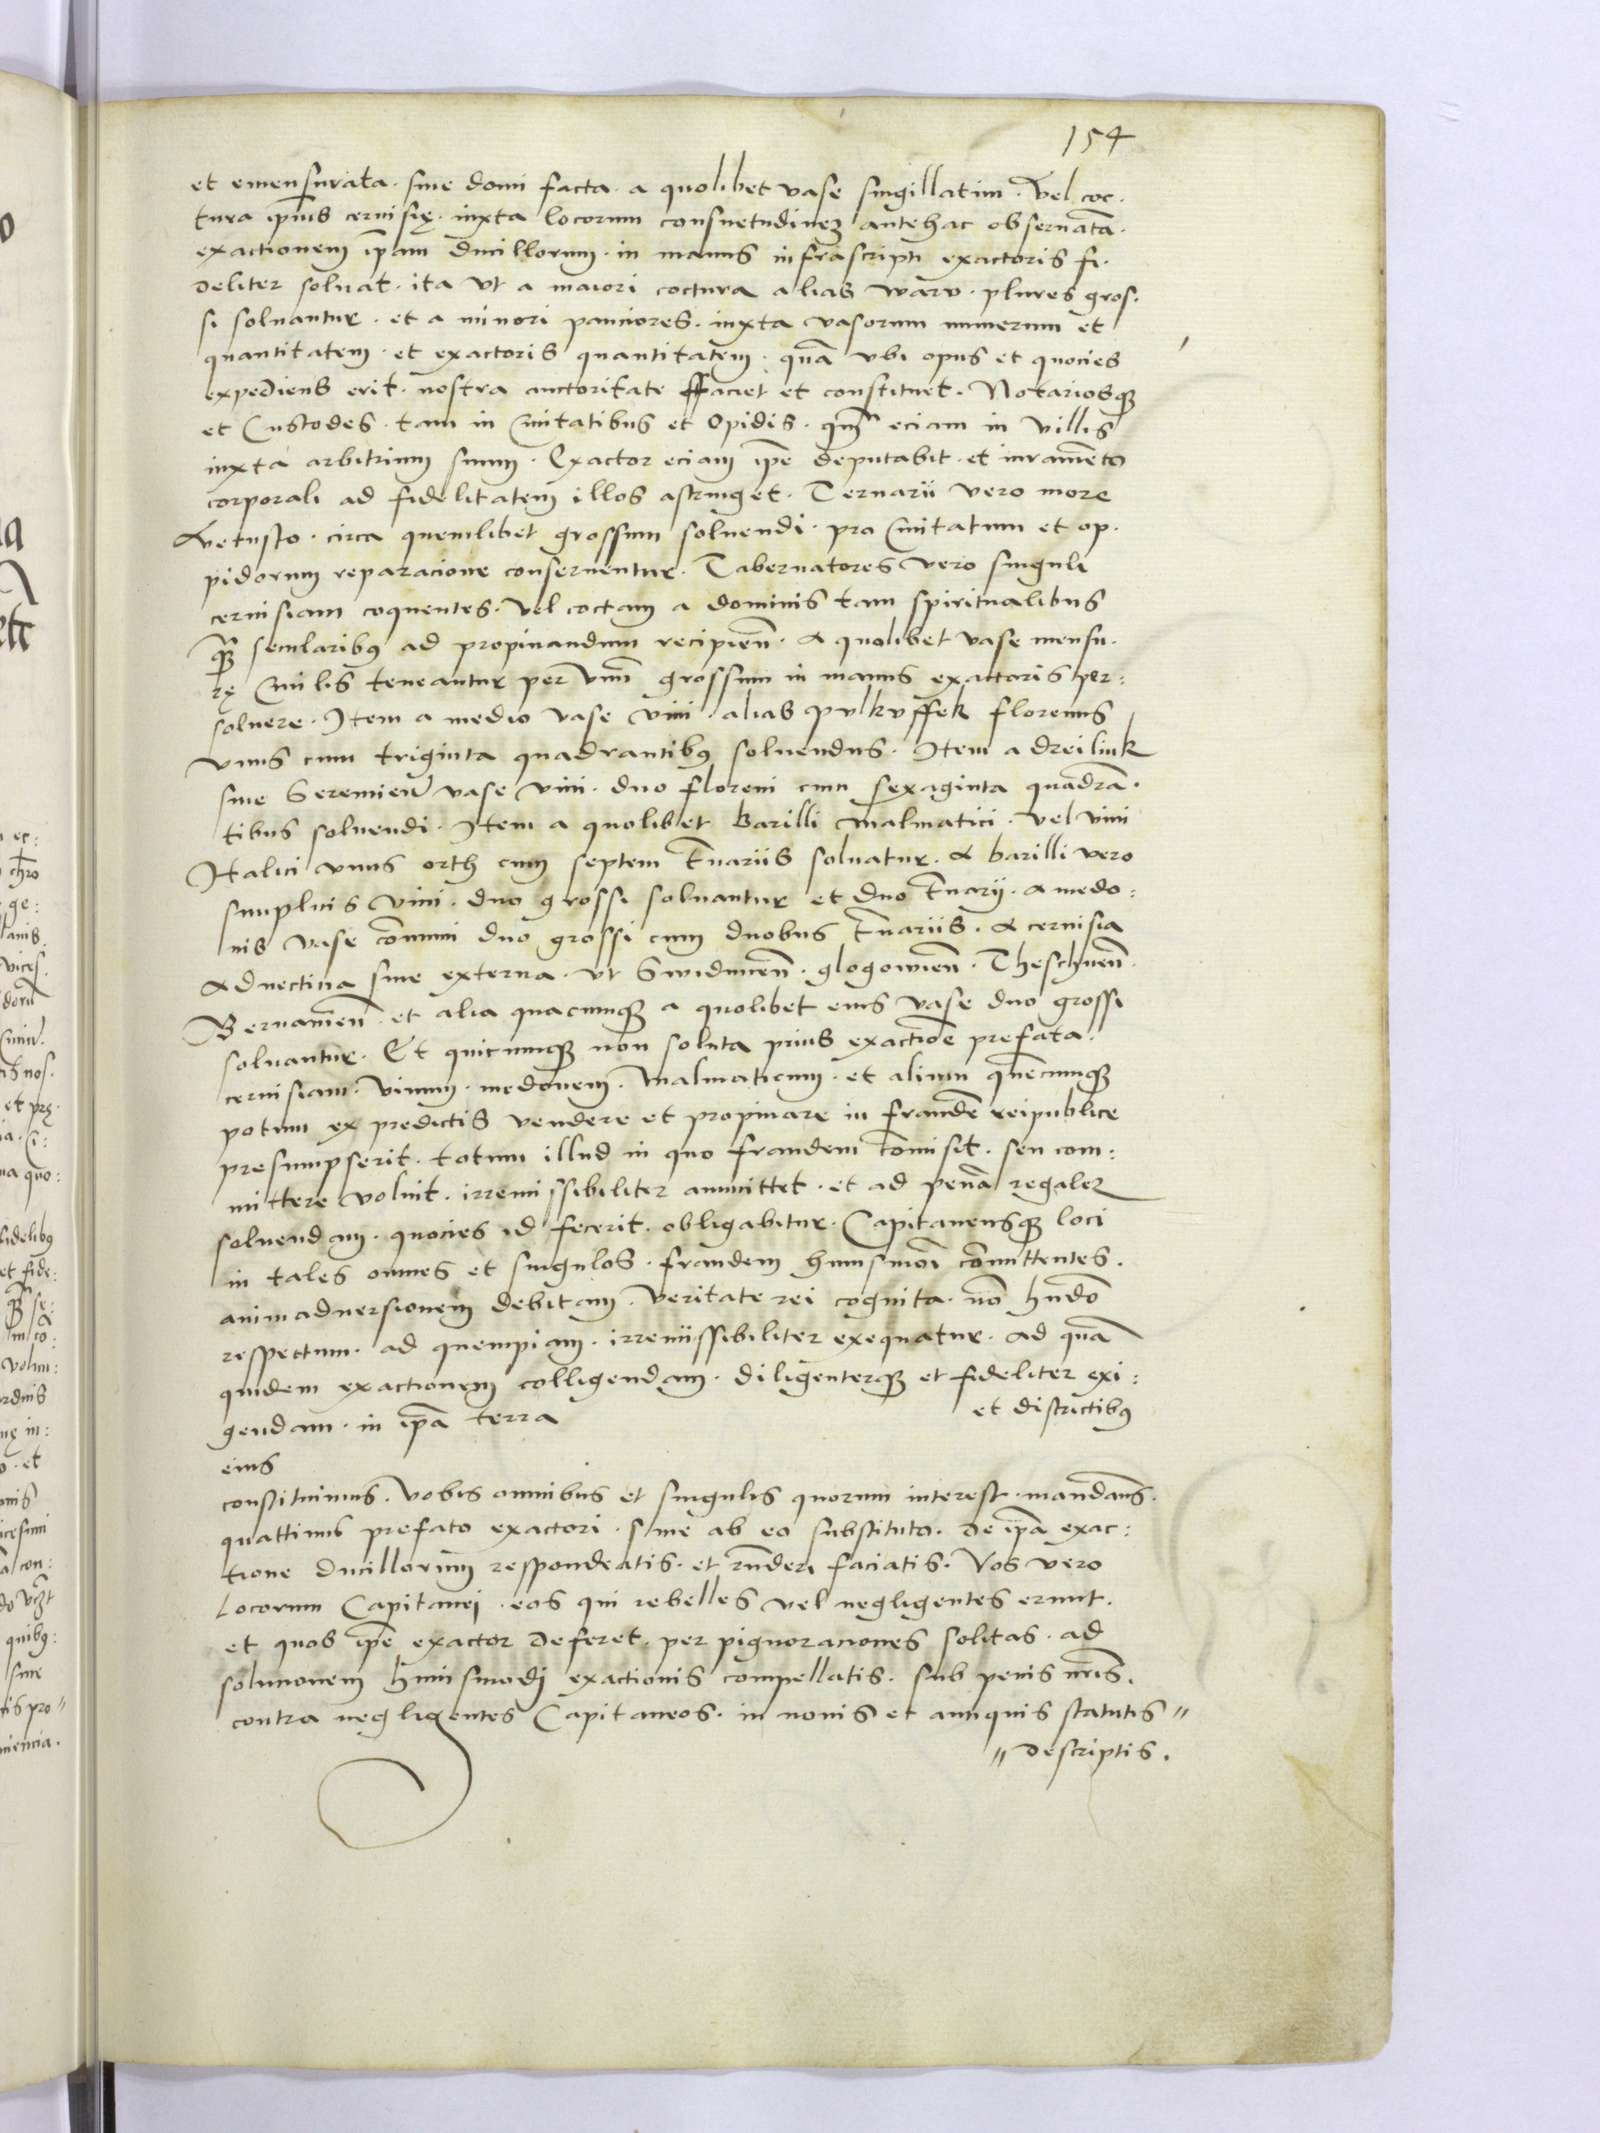 154
et emensurata · siue domi facta · a quolibet vase singillatim · Vel coc·
tura ip̄ius ceruisię · iuxta locorum consuetudinez antehac obseruatā·
exactionem ip̄am ducillorum · in manus infrascripti exactoris fi·
deliter soluat · ita vt a maiori coctura alias warv · plures gros·
si soluantur · et a minori pauciores · iuxta vasorum numerum et
quantitatem · et exactoris quantitatem · quā vbi opus et quocies
expediens erit · nostra auctoritate ffaciet et constituet · Notariosq̃
et Custodes · tam in Ciuitatibus et Opidis · qm̄ eciam in Villis
iuxta arbitrium suum · Exactor eciam ip̄e deputabit · et iuramēto
corporali ad fidelitatem illos astringet · Ternarii vero more
vetusto · circa quemlibet grossum soluendi · pro Ciuitatum et op·
pidorum reparacione conseruentur · Tabernatores vero singuli
ceruisiam coquentes · vel coctam a dominis tam spiritualibus
q̃ secularibꝰ ad propinandum recipieñ · A quolibet vase mensu·
rę Ciuilis teneantur per vnū grossum in manus exactoris per:
soluere · Item a medio vase vini · alias pulkvffek florenus
vnus cum triginta quadrantibꝰ soluendus · Item a dreilink
siue Seremieñ vase vini · duo floreni cum sexaginta quadrā·
tibus soluendi · Item a quolibet Barilli malmatici · Vel vini
Italici vnus orth cum septem t̄nariis soluatur · A barilli vero
simplicis vini · duo grossi soluantur et duo t̄narij · A medo:
nis vase cōmuni duo grossi cum duobus t̄nariis · A ceruisia
Aduecticia siue externa · vt Swidniceñ · glogouieñ · Theschneñ·
Bernameñ · et alia quacumq̃ a quolibet eius vase duo grossi
soluantur · Et quicumq̃ non soluta prius exactiōe prefata·
ceruisiam · vinum · medonem · malmaticum · et alium quēcumq̃
potum ex predictis vendere et propinare in fraudē reipublice
presumpserit · totum illud in quo fraudem cōmisit · seu com:
mittere voluit · irremissibiliter ammittet · et ad penā regalez
soluendam · quocies id fecerit · obligabitur · Capitaneusq̃ loci
in tales omnes et singulos · fraudem huiusmōi cōmittentes ·
animaduersionem debitam · veritate rei cognita · nō hn̄do
respectum · ad quempiam · irremissibiliter exequatur · Ad quā
quidem exactionem colligendam · diligenterq̃ et fideliter exi:
gendam · in ip̄a terra et districtibꝰ
eius
constituimus · Vobis omnibus et singulis quorum interest · mandam̄s·
quattinus prefato exactori · siue ab eo substituto · de ip̄a exac:
tione ducillorum respondeatis · et rn̄deri faciatis · Vos vero
Locorum Capitanei · eos qui rebelles vel negligentes erunt·
et quos ip̄e exactor deferet · per pignoraciones solitas · ad
solucionem huiusmodj exactionis compellatis · sub penis nr̄is ·
contra negligentes Capitaneos · in nouis et antiquis statutis "
" descriptis ·